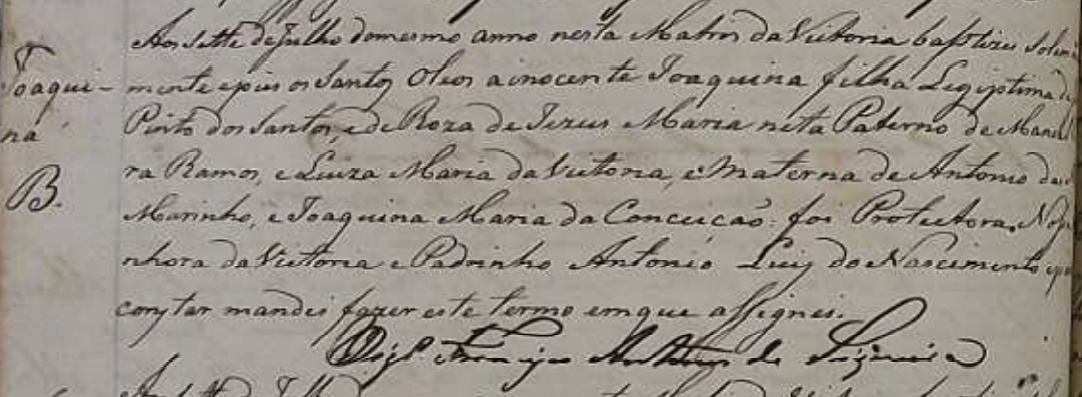 Aos sette de Julho do mesmo anno nesta Matris da Victoria baptizei Solem
Joaqui-
na
B.
mente epus os Santos Oleos a inocente Joaquina filha Legiptima de
Pinto dos Santos, e de Roza de Jezus Maria neta Paterno de Mano
ra Ramos, e Luiza Maria da Victoria, e Materna de Antonio da
Marinho, e Joaquina Maria da Conceiçaõ: foi Protectora, Nossa
nhora da Victoria e Padrinho Antonio Luiz do Nascimento e pa
constar mandei fazer este termo em que assignei.